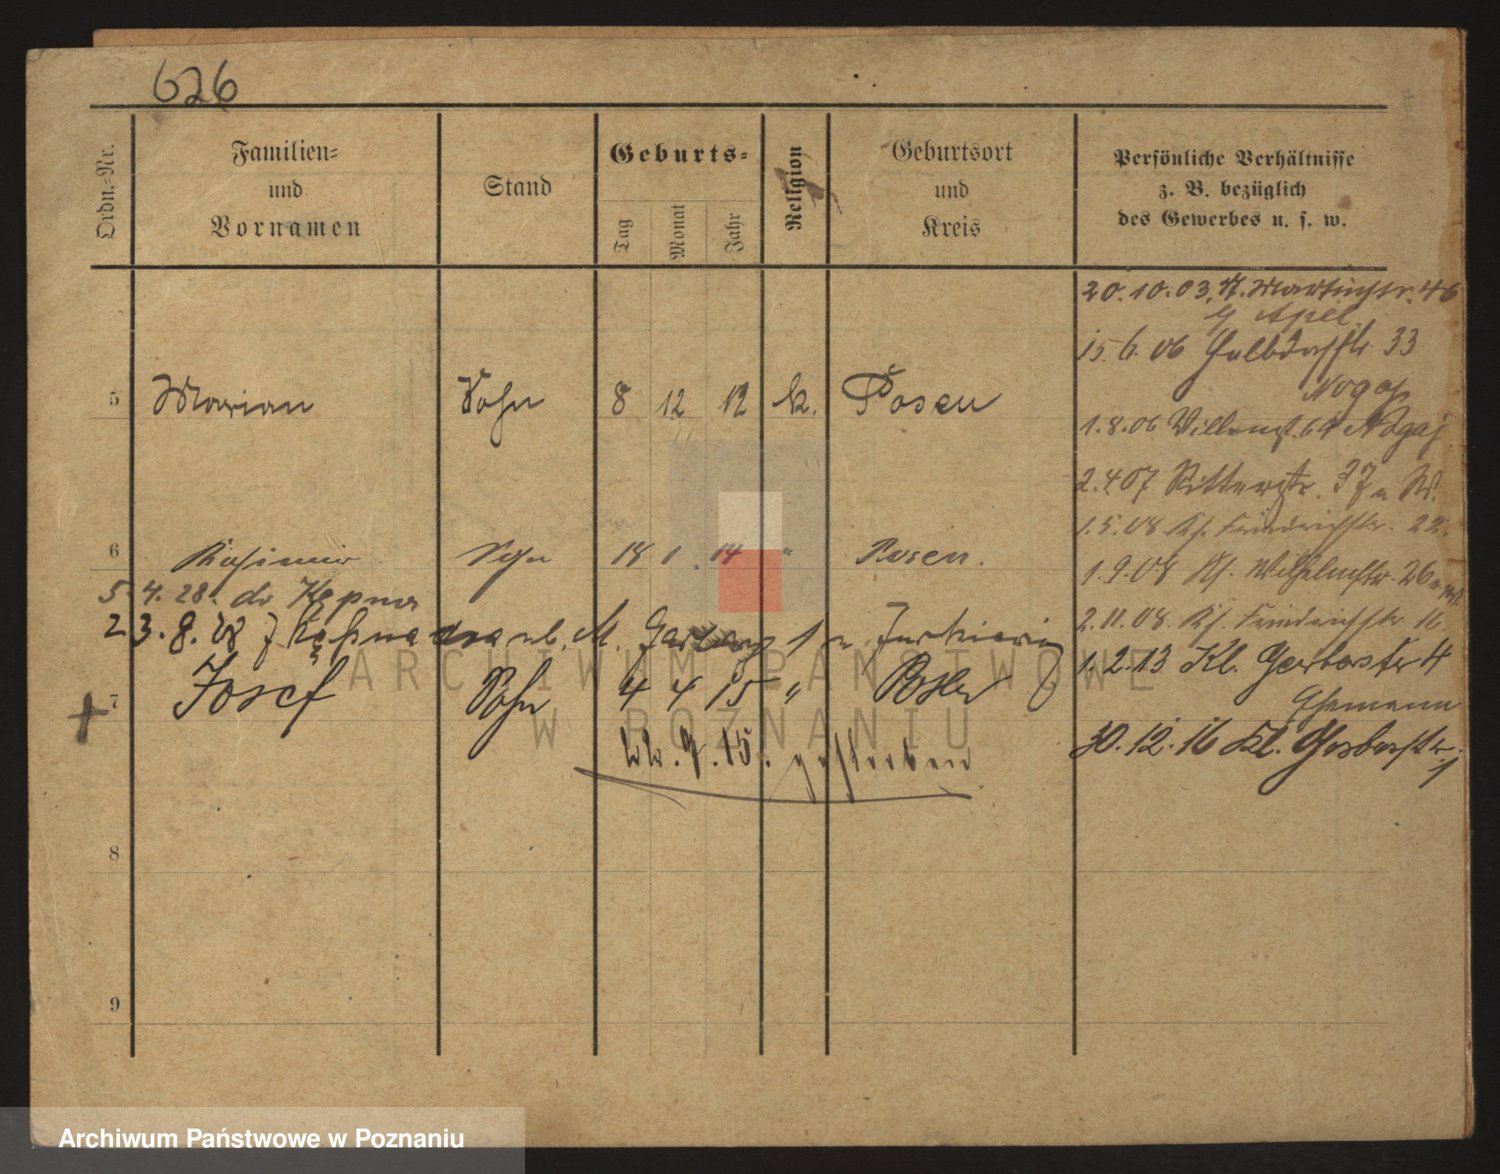 626
Ordn.-Nr.
Familien-
und
Vornamen
Stand
Geburts-
Tag
Monat
Jahr
Religion
Geburtsort
und
Kreis
Persönliche Verhältnisse
z. B. bezüglich
des Gewerbes u. s. w.
20.10.03. Martinstr. 46
b/ Apel
15.6.06 Halbdorfstr 33
Nogaj
5 Marian Sohn 8 12 12 k. Posen
1.8.06 64 Nogaj
2.4.07 Ritterstr. 37
1.5.08 Kl. Friedrichstr. 22.
6 Kasimir Sohn 18 1. 14 " Posen.
1.9.08 Kl. Wilhelmstr. 26
5.4.28. do Kępna
2.11.08. Kl. Friedrichstr 16
23.8.28 z Kępna M. Garbary 1
1.2.13 Kl. Gerberstr 4
7 Josef Sohn 4 4 15 " Posen
Ehemann
30.12.16 Kl. Gerberstr. 1
22.9.15. gestorben
8
9
ARCHIWUM PAŃSTWOWE
W POZNANIU
Archiwum Państwowe w Poznaniu